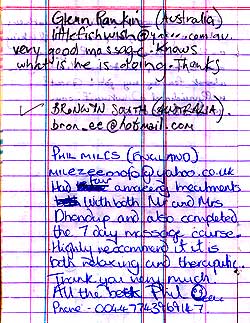 Glenn Rankin (Australia)
littlefishwish@yahoo.com.au.
very good massage. Knows
what is he is doing. Thanks
✓ BRONWYN SOUTH (AUSTRALIA).
bron_ee@hotmail.com
PHIL MILES (ENGLAND)
@yahoo.co.uk
Had four amazing treatments
with both Mr and Mrs
Dhondup and also completed
the 7 day massage course.
Highly recommend it it is
both relaxing and therapeutic.
Thank you very much.
All the best Phil
Phone - 00447743969147